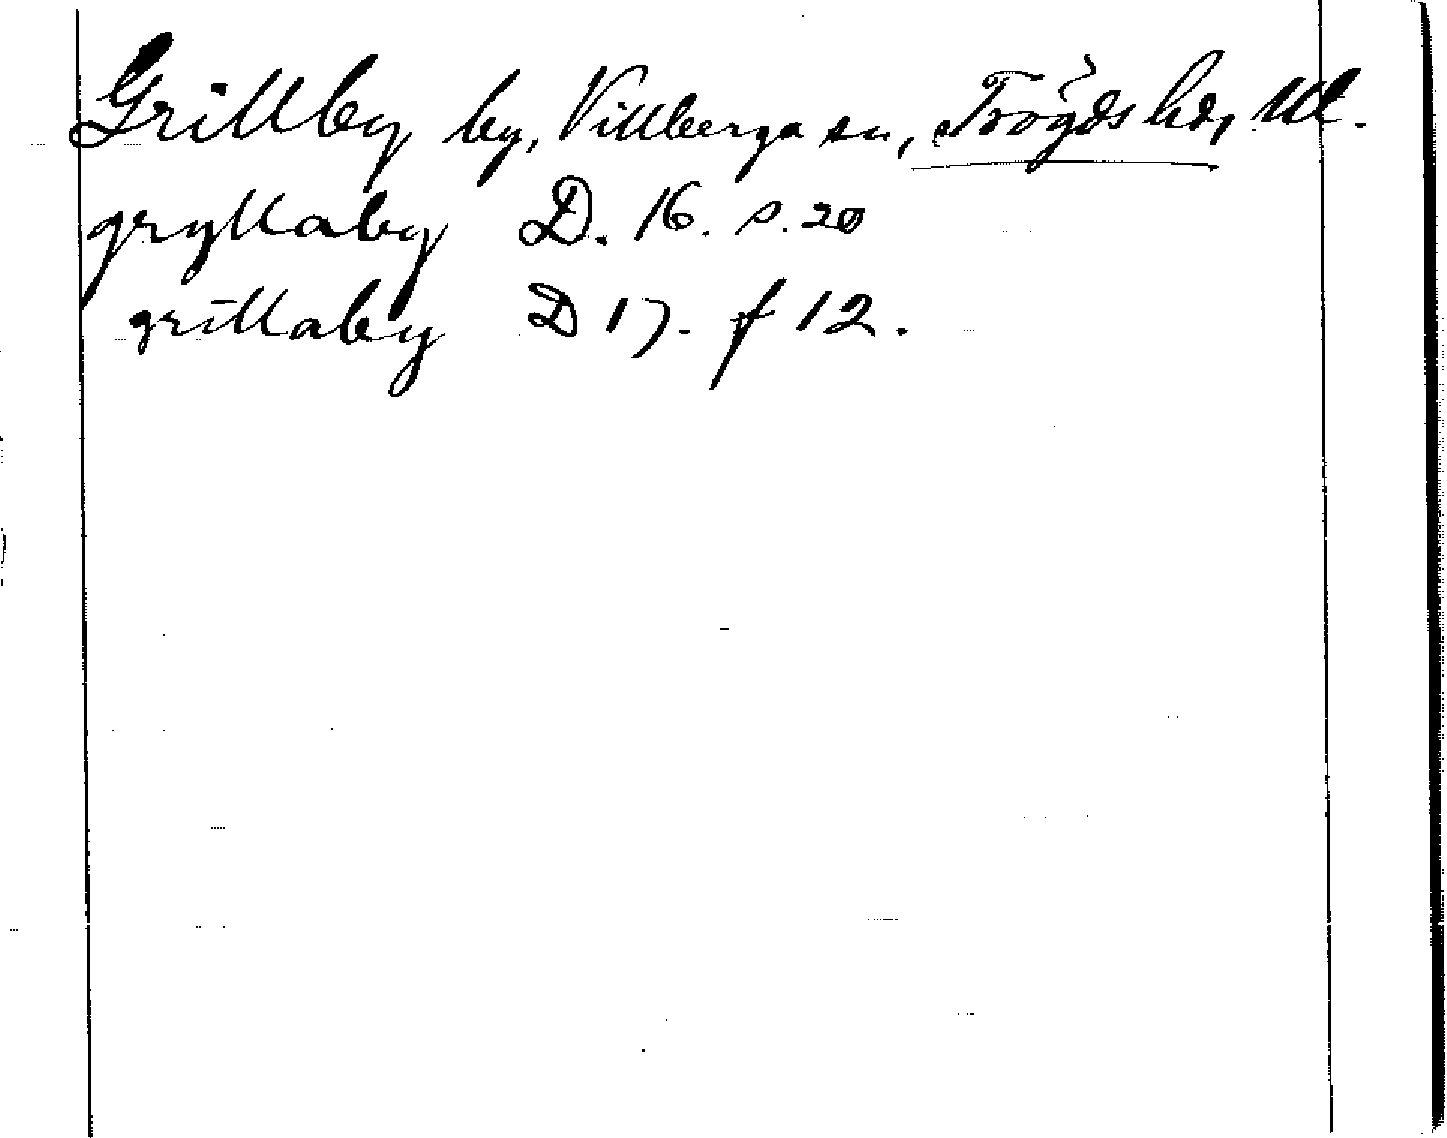 Grillby by, Villberga sn, Trögds hd, Upl.
gryllaby D. 16. s. 20
grillaby D 17. f 12.